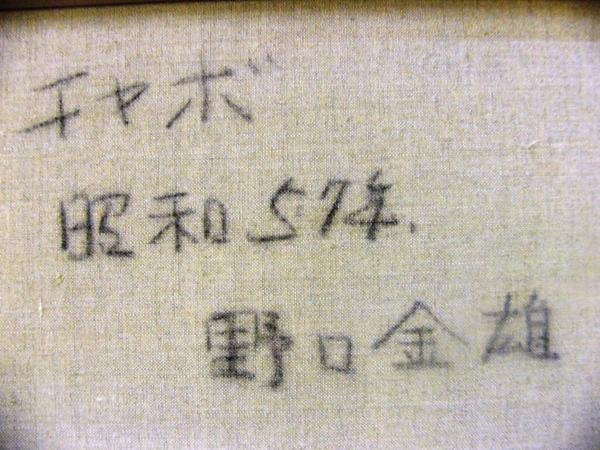 チャボ
昭和57年.
野口金雄